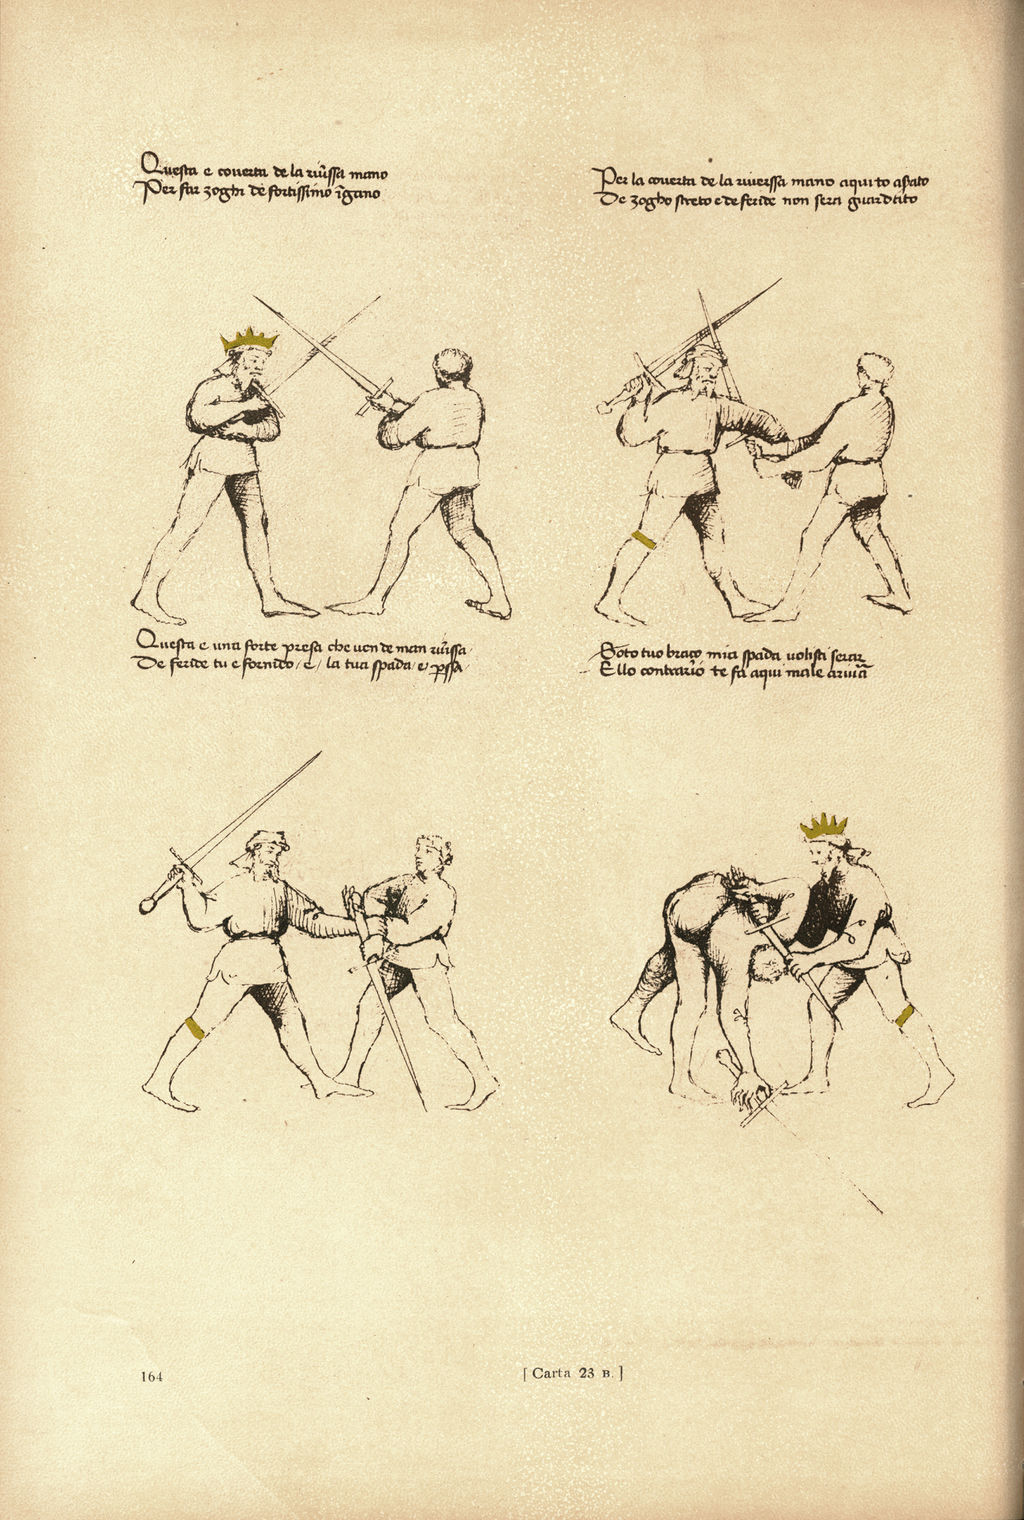 Questa e coverta de la riv̄ssa mano
Per far zoghi de fortissimo īgano
Per la coverta de la riverssa mano aqui to aspato
De zogho streto e de feride non sera guardato
Questa e una forte presa che ven de man riv̄ssa
De feride tu e fornido / e / la tua spada / e p̱ssa
Soto tuo braço mia spada volisti serar
E llo contrario te fa aqui male arivā
164
[ Carta 23 B. ]